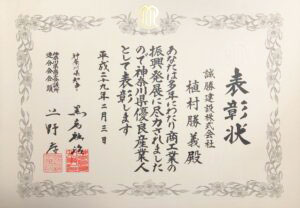 表彰状
誠勝建設株式会社
植村勝義殿
あなたは多年にわたり商工業の
振興発展に尽力されました
ので神奈川県優良産業人
として表彰します
平成二十九年二月三日
神奈川県知事
黒岩祐治
会頭
上野孝